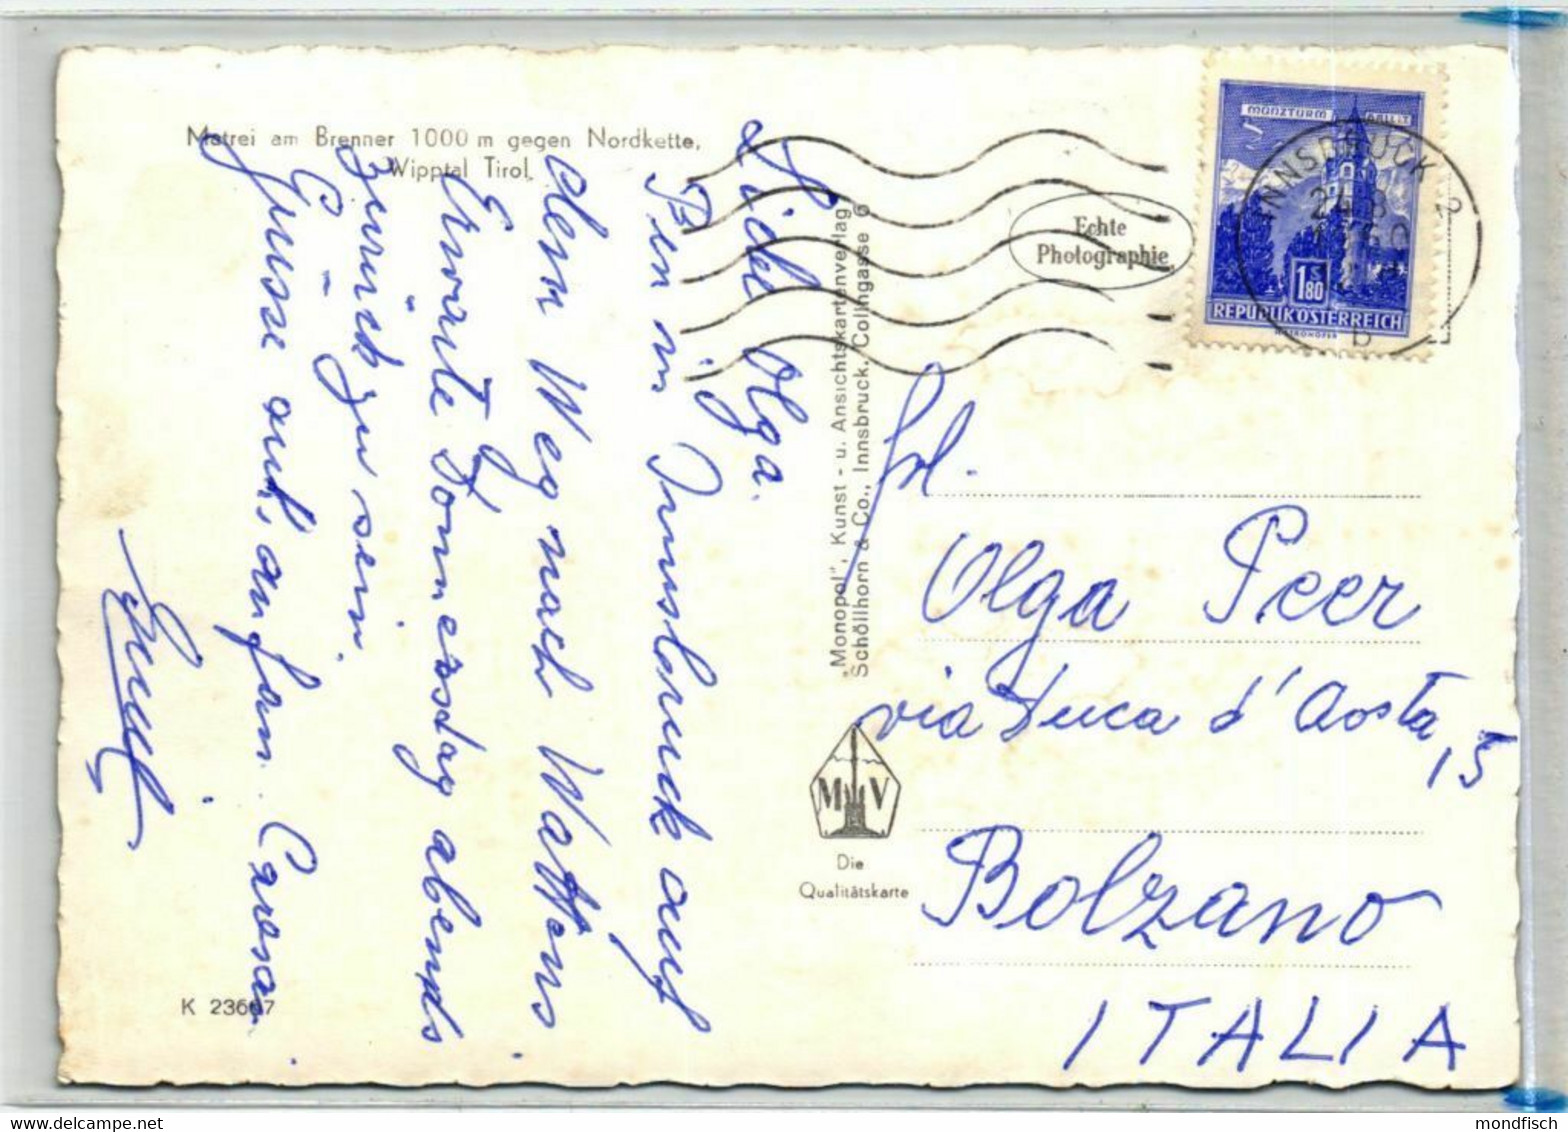 Matrei am Brenner 1000 m gegen Nordkette,
Wipptal Tirol
Liebe Olga.
Bin in Innsbruck auf
dem Weg nach Wattens
Erwarte Donnerstag abends
zurück zu sein.
Grüsse auch an fam.
"Monopol", Kunst- u. Ansichtskartenverlag
Schöllhorn & Co., Innsbruck, Colingasse 6
Echte
Photographie
MÜNZTURM
1.80
REPUBLIK ÖSTERREICH
INNSBRUCK
b
frl.
Olga Peer
via Duca d'Aosta,
Bolzano
ITALIA
M V
Die
Qualitätskarte
K 23667
mondfisch